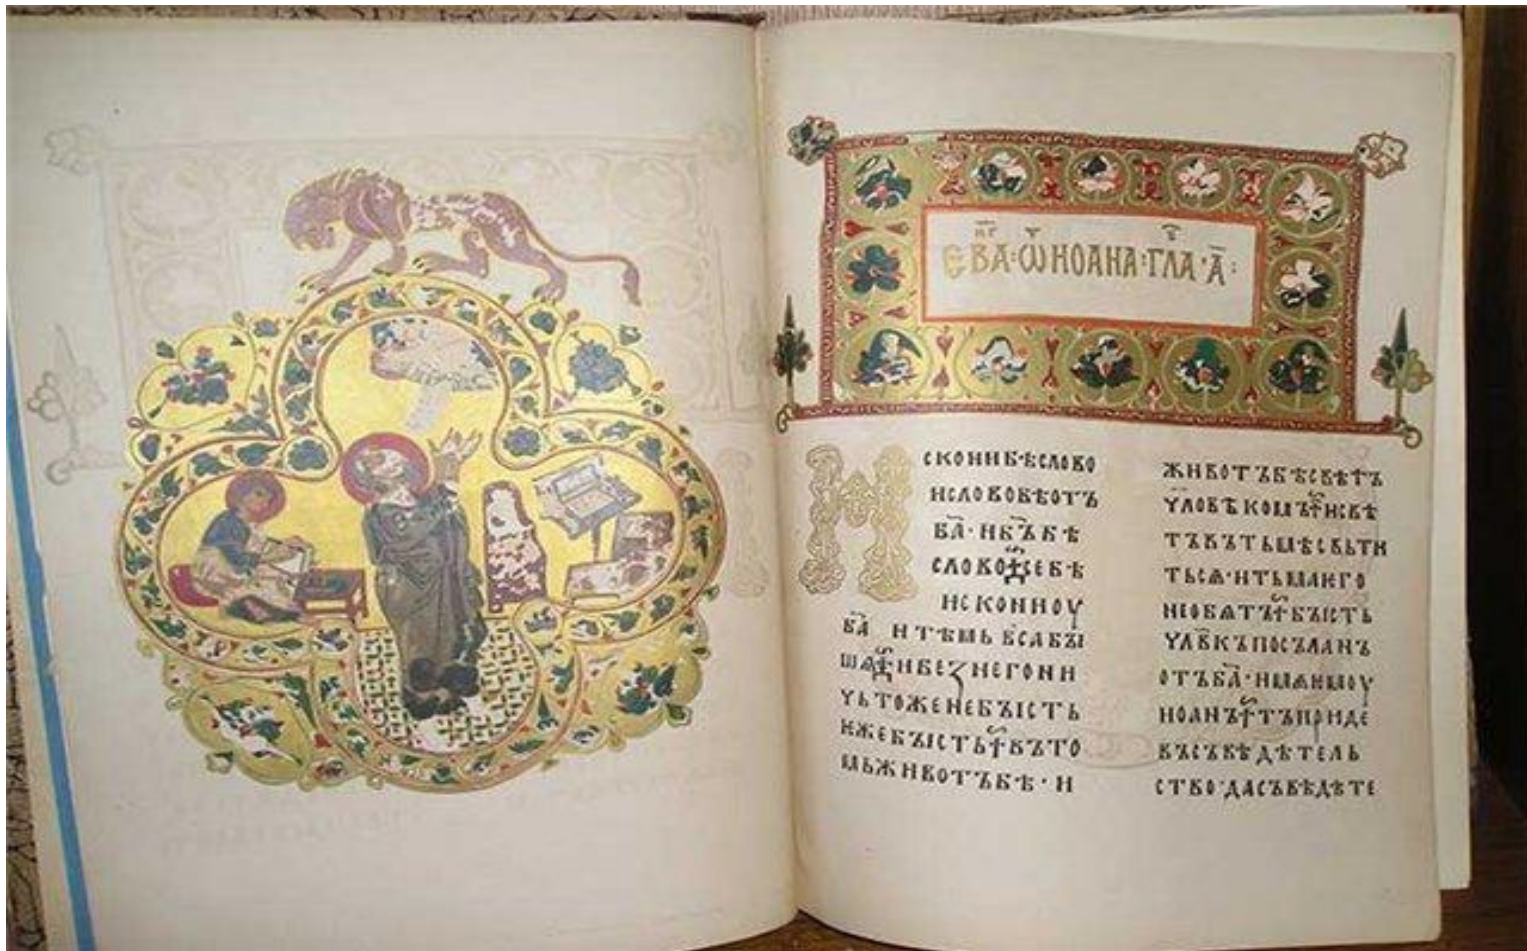 ЕВА · Ѿ ИОАНА · ГЛА · А҃ :
Искони бѣ слово
и слово бѣ отъ
ба҃ · и бъ҃ бѣ
слово се бѣ
искони оу
ба҃ и тѣмь вса бы
шѧ и без него ни
чьтоже не бысть
иже бысть въ то
мь животъ бѣ · и
животъ бѣ свѣтъ
чловѣкомъ и свѣ
тъ въ тьмѣ свьти
тьсѧ · и тьма него
не обятъ бысть
члв҃къ посъланъ
отъ ба҃ · имѧ имоу
иоанъ тъ приде
въ съвѣдѣтель
ство · да съвѣдѣте